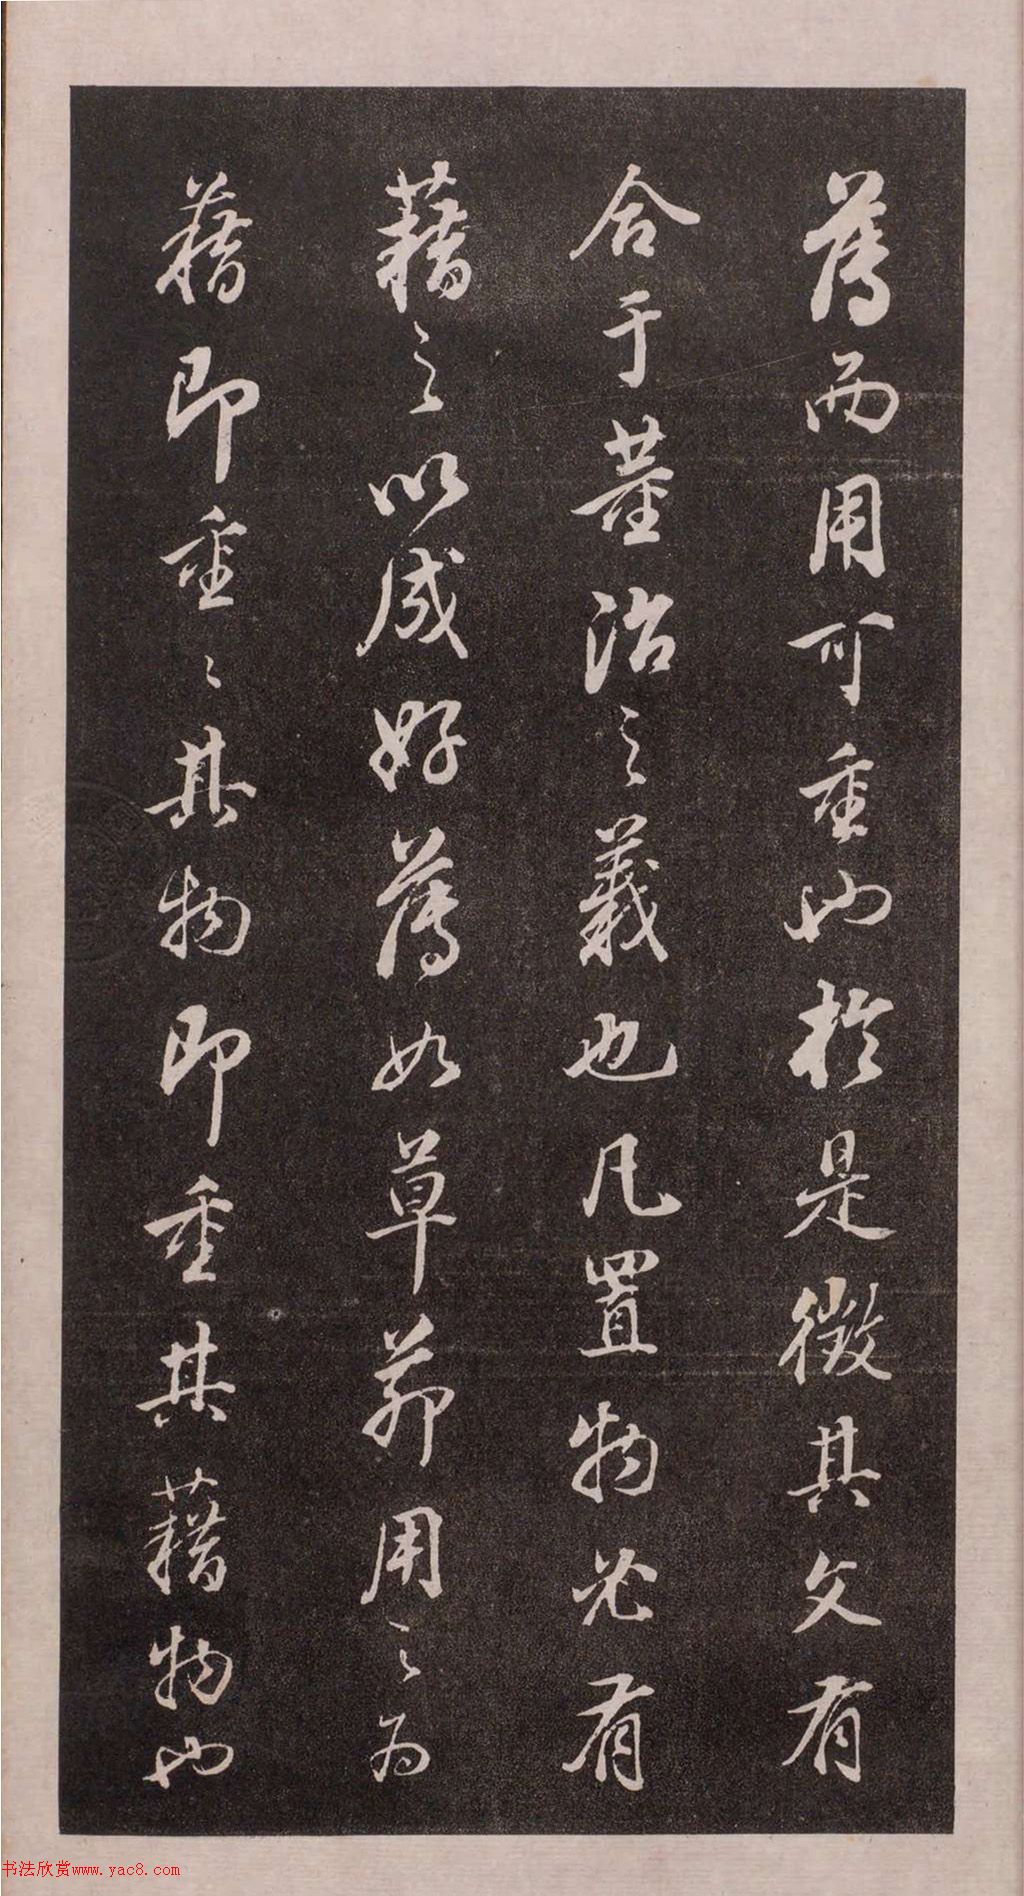 薄而用可重也於是徵其文有
合于董治之義也凡置物必有
藉之以成好薄如草茆用之為
藉即重〻其物即重其藉物也
书法欣赏www.yac8.com